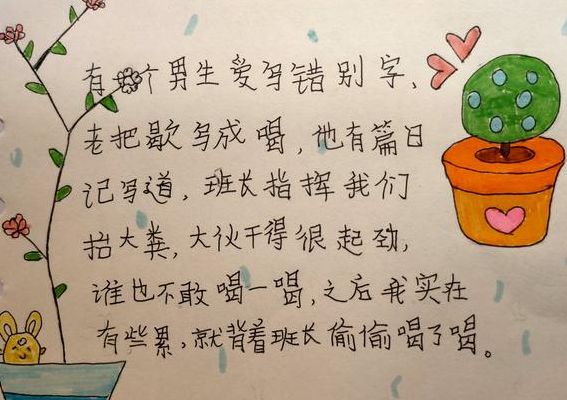 有一个男生爱写错别字、
老把歇写成喝，他有篇日
记写道，班长指挥我们
抬大粪，大伙干得很起劲，
谁也不敢喝一喝，之后我实在
有些累，就背着班长偷偷喝了喝。